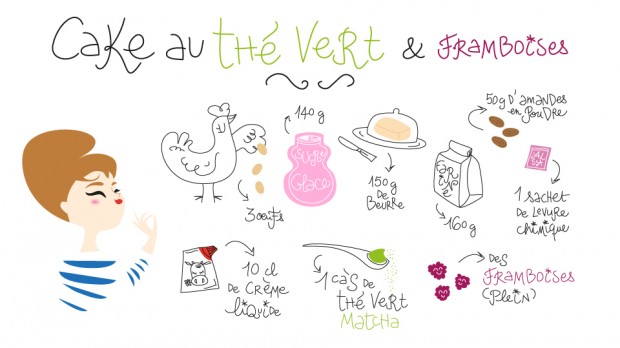 Cake au thé vert & framboises
3 œufs
140g
Sucre
Glace
150g
de
Beurre
Farine
160g
50g d'amandes
en poudre
ALSA
1 sachet
de levure
chimique
10 cl
de crème
liquide
1 càs de
thé vert
Matcha
des
framboises
(plein)